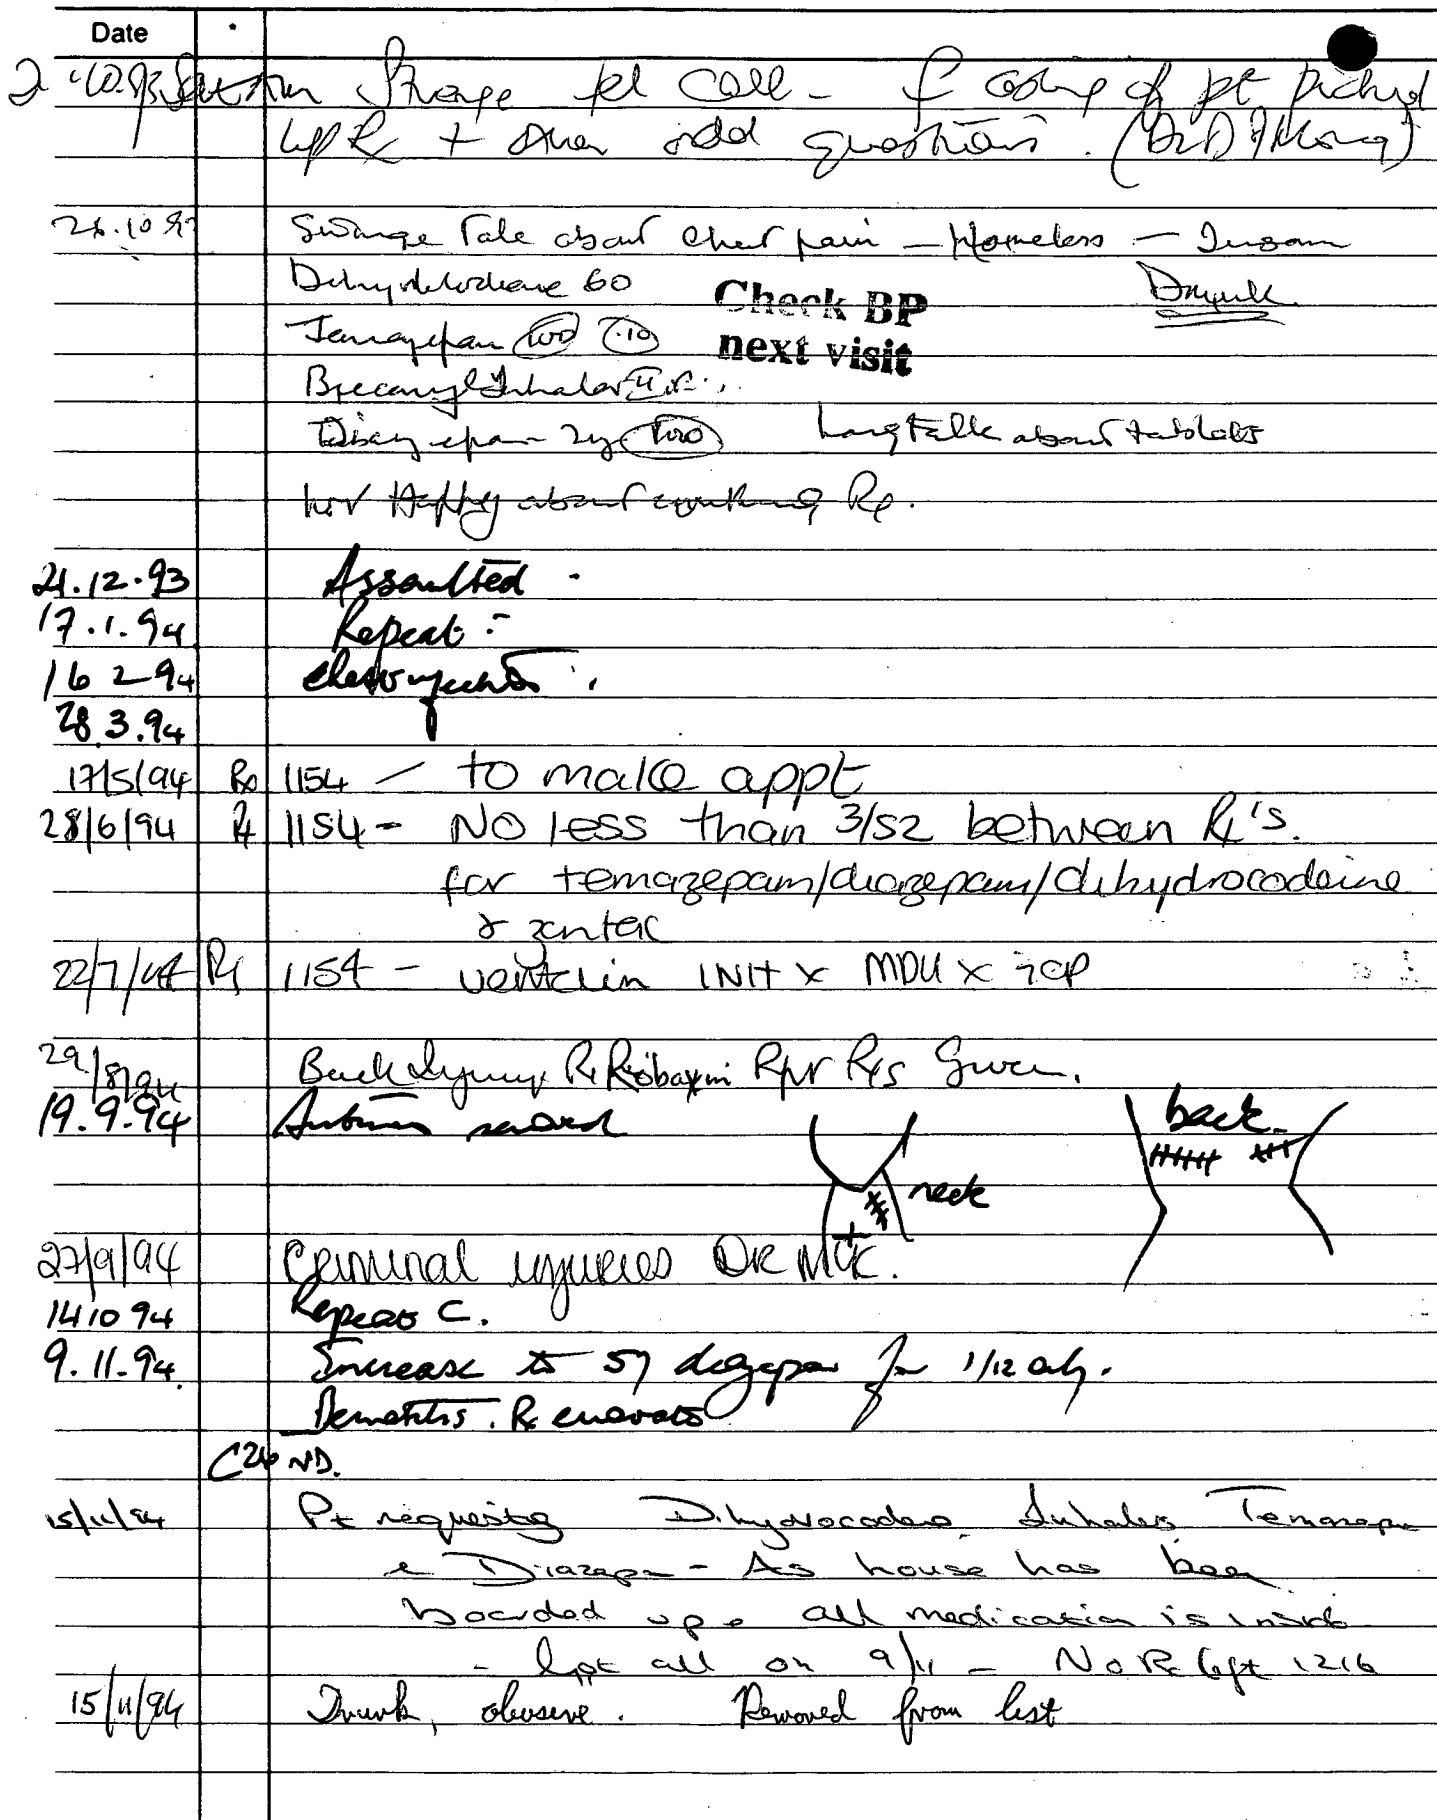 Date
Strange tel call - ? asking if pt picked
up Rx + other odd questions.
26.10.93 Strange Tale about Chest pain - Homeless -
Dihydrocodeine 60 Drunk
Check BP
Temazepam
next visit
Bricanyl Inhaler
Diazepam 2mg Long talk about tablets
not Happy about Rx.
21.12.93 Assaulted
17.1.94 Repeat
16 2 94
28.3.94
17/5/94 Rx 1154 - to make appt
28/6/94 Rx 1154 - NO less than 3/52 between Rx's.
for temazepam/diazepam/dihydrocodeine
& zantac
22/7/94 Rx 1154 - ventolin INH x MDU x TOP
29/8/94 Back Injury Rx Robaxin Rpt Rxs Given.
19.9.94 back
neck
27/9/94 Criminal injuries DR McK.
14 10 94 Repeat C.
9.11.94 Increase to 5mg diazepam for 1/12 only.
Dermatitis. Rx
ND.
15/11/94 Pt requesting Dihydrocodeine Inhaler Temazepam
& Diazepam - As house has been
boarded up & all medication is inside
all on 9/11 - No Rx left 1216
15/11/94 Drunk, abusive. Removed from list